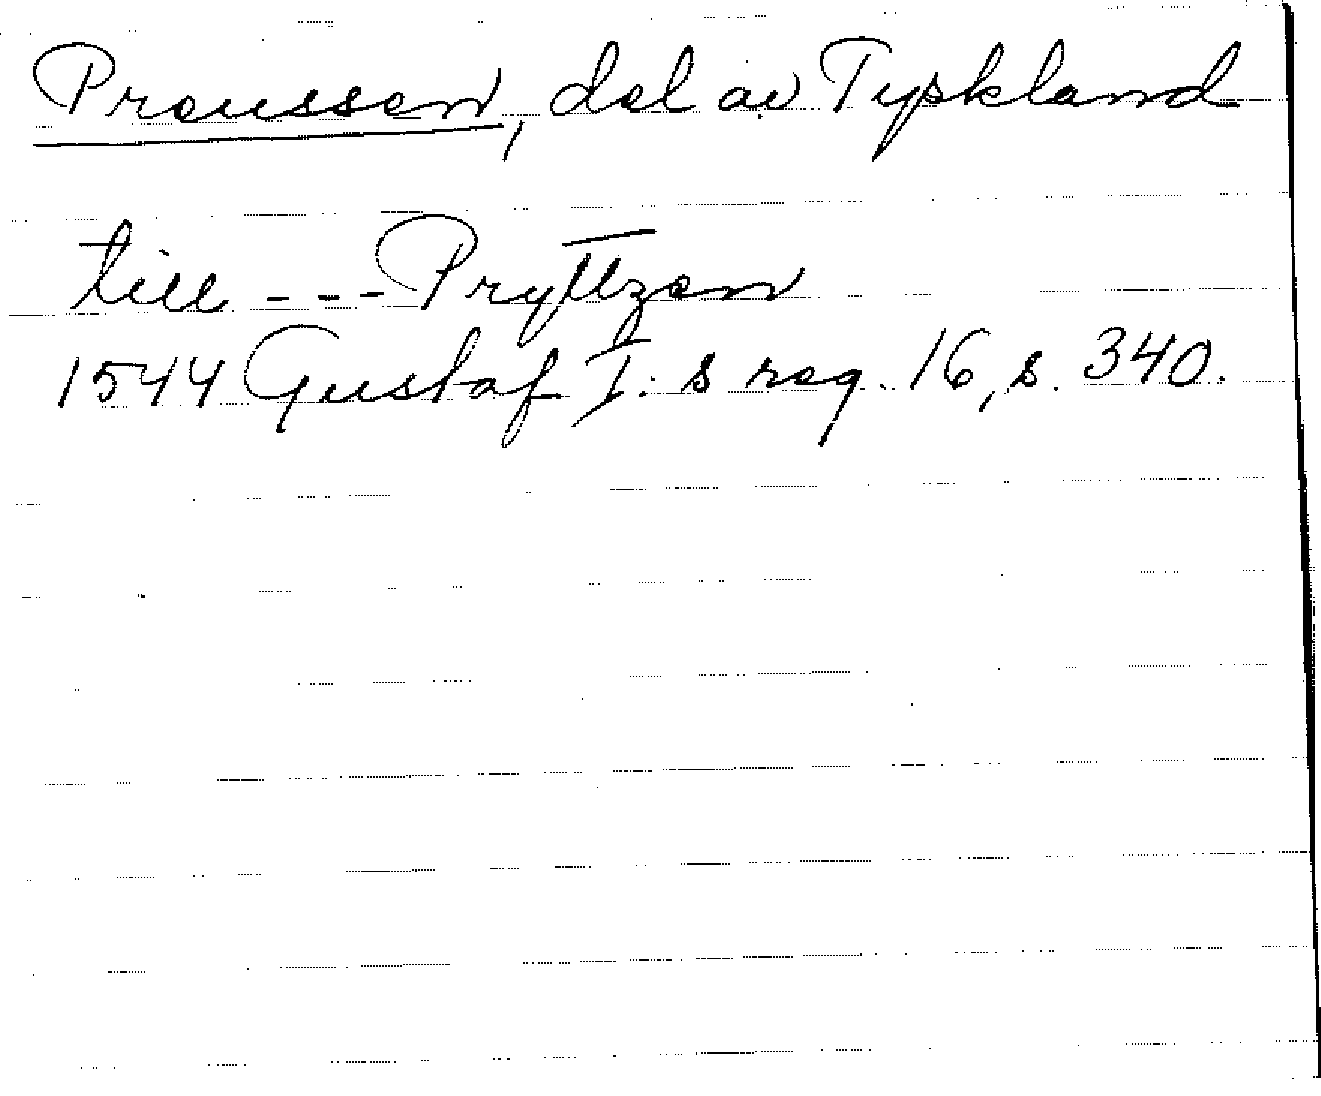 Preussen, del av Tyskland
till --- Pryttzen
1544 Gustaf I:s reg. 16, s. 340.